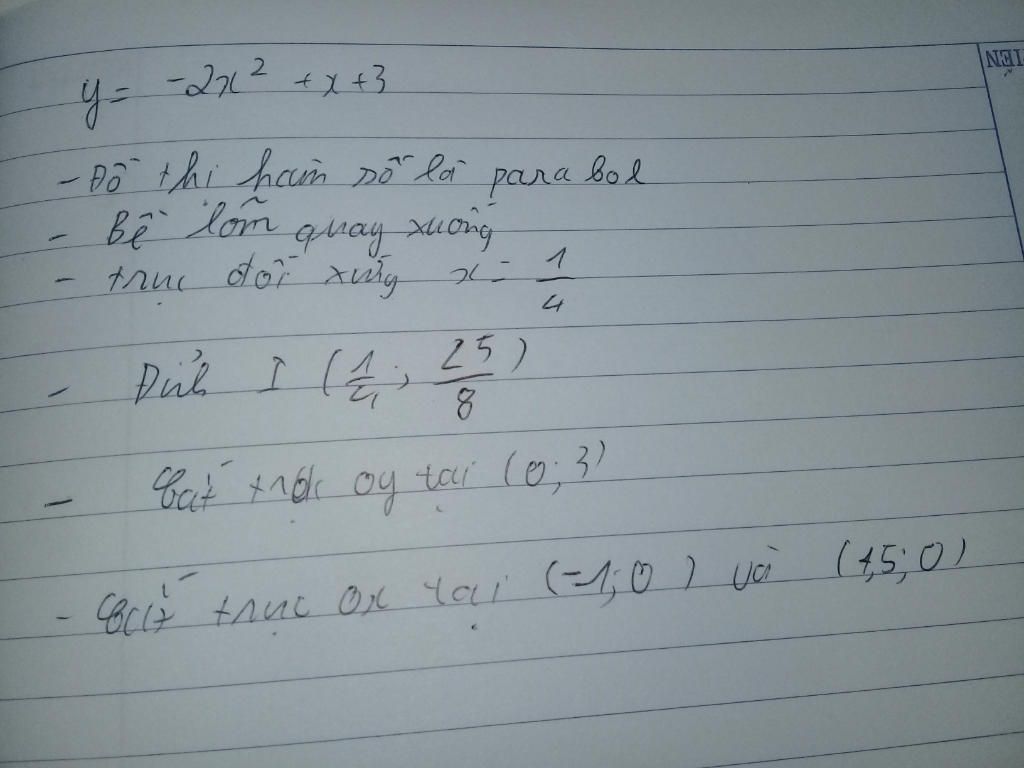 y = -2x² + x + 3
- Đồ thị hàm số là parabol
- Bề lõm quay xuống
- trục đối xứng x = 1/4
- Đỉnh I (1/4; 25/8)
- Cắt trục oy tại (0; 3)
- Cắt trục Ox tại (-1; 0) và (1,5; 0)